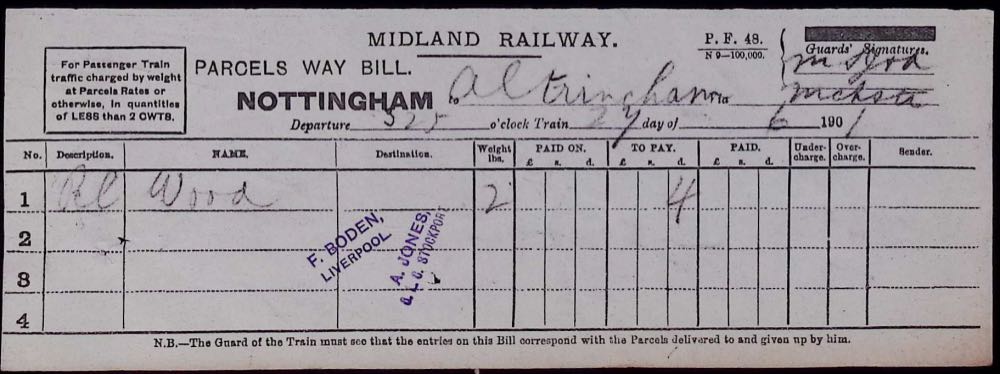 MIDLAND RAILWAY.
P. F. 48.
N 9—100,000.
Guards' Signatures.
For Passenger Train
traffic charged by weight
at Parcels Rates or
otherwise, in quantities
of LESS than 2 CWTS.
PARCELS WAY BILL.
NOTTINGHAM to Altrincham Via
Departure 325 o'clock Train 27 day of 6 1901
No. Description. NAME. Destination. Weight lbs. PAID ON. £ s. d. TO PAY. £ s. d. PAID. £ s. d. Under-charge. Over-charge. Sender.
1 Pcl Wood 2 4
2
3
4
F. BODEN,
LIVERPOOL.
A. JONES,
STOCKPORT
N.B.—The Guard of the Train must see that the entries on this Bill correspond with the Parcels delivered to and given up by him.